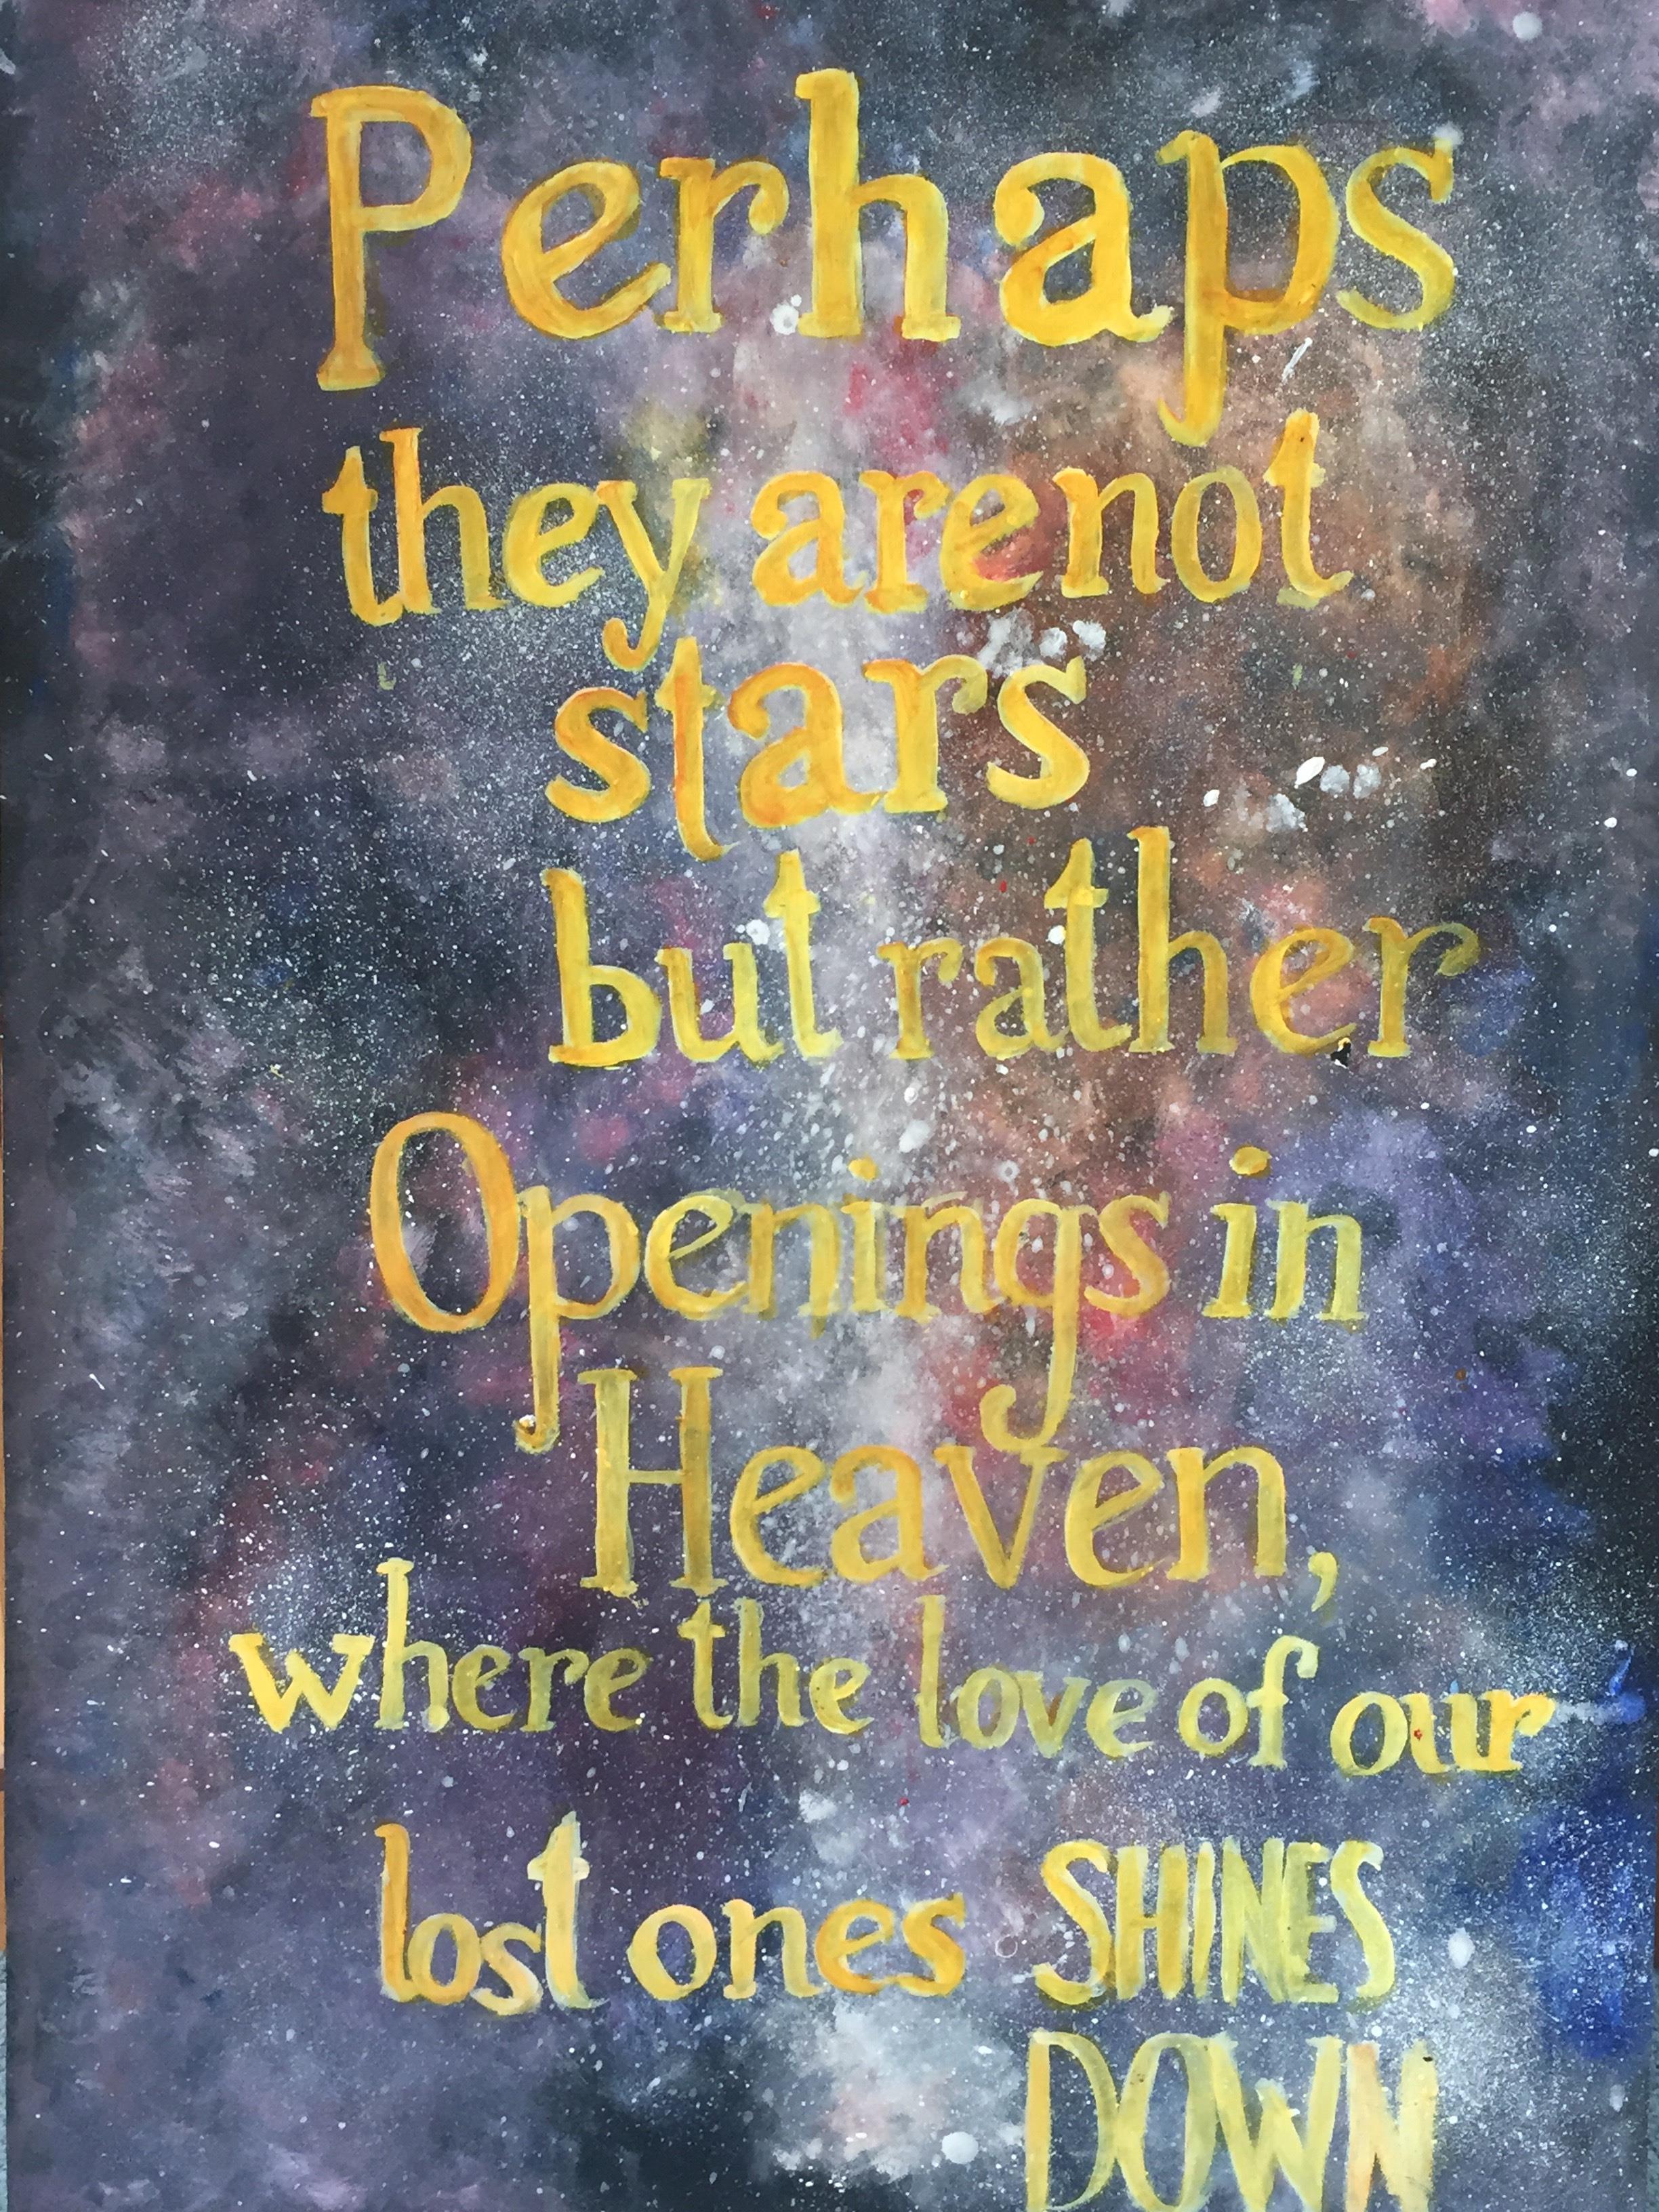 Perhaps
they are not
stars
but rather
Openings in
Heaven,
where the love of our
lost ones SHINES
DOWN